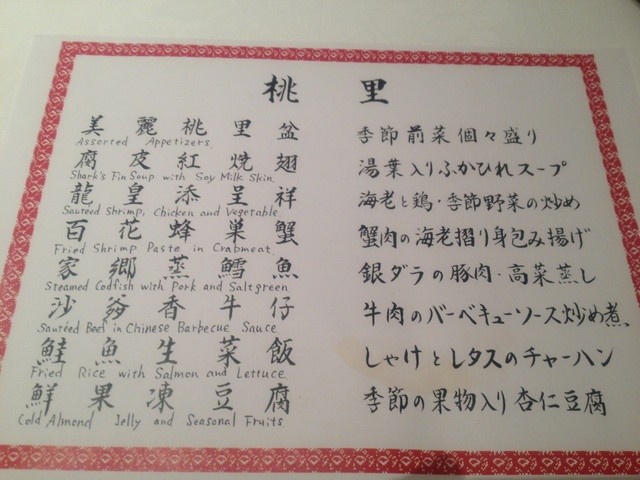 桃里
美麗桃里盆
Assorted Appetizers
季節前菜個々盛り
腐皮紅焼翅
Shark's Fin Soup with Soy Milk Skin
湯葉入りふかひれスープ
龍皇添呈祥
Sauteed Shrimp, Chicken and Vegetable
海老と鶏・季節野菜の炒め
百花蜂巣蟹
Fried Shrimp Paste in Crabmeat
蟹肉の海老摺り身包み揚げ
家郷蒸鱈魚
Steamed Codfish with Pork and Saltgreen
銀ダラの豚肉・高菜蒸し
沙爹香牛仔
Sautéed Beef in Chinese Barbecue Sauce
牛肉のバーベキューソース炒め煮
鮭魚生菜飯
Fried Rice with Salmon and Lettuce
しゃけとレタスのチャーハン
鮮果凍豆腐
Cold Almond Jelly and Seasonal Fruits
季節の果物入り杏仁豆腐